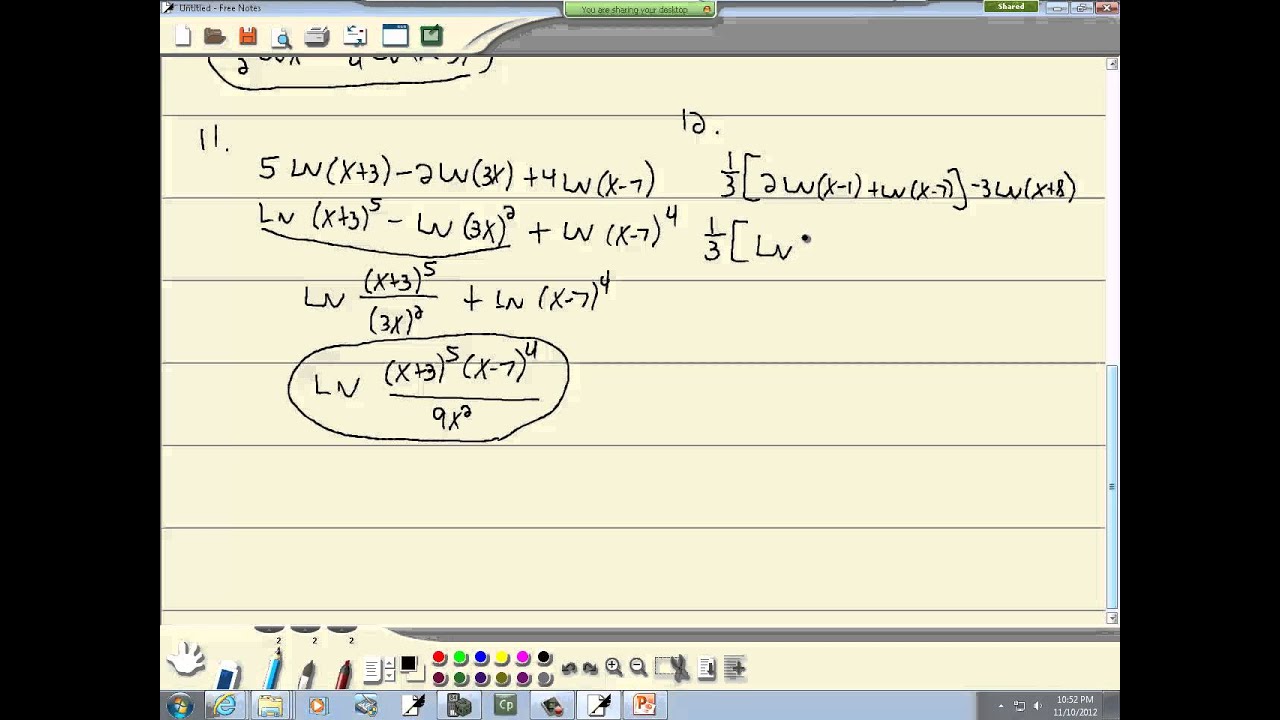 Untitled - Free Notes
You are sharing your desktop
Shared
11.
5 LN(X+3) - 2LN(3X) + 4LN(X-7)
LN (X+3)^5 - LN (3X)^2 + LN (X-7)^4
LN (X+3)^5/(3X)^2 + LN (X-7)^4
LN (X+3)^5(X-7)^4/9X^2
12.
1/3[2LN(X-1) + LN(X-7)] - 3LN(X+8)
1/3[LN
2 2 2
Cp
10:52 PM
11/10/2012